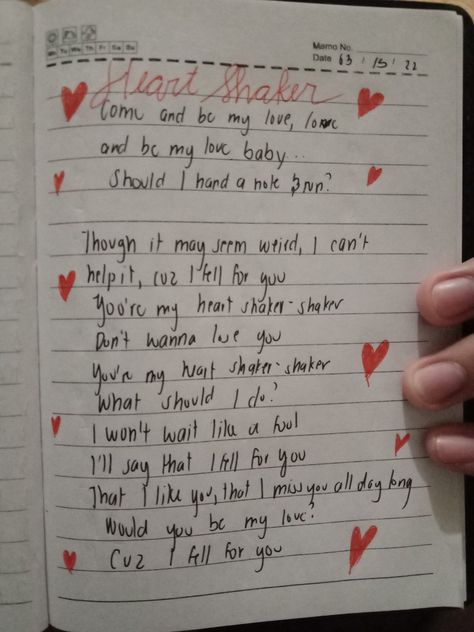 Mo Tu We Th Fr Sa Su
Memo No.
Date 03 / 15 / 22
Heart Shaker
Come and be my love, come
and be my love baby..
Should I hand a note & run?
Though it may seem weird, I can't
help it, cuz I fell for you
You're my heart shaker-shaker
Don't wanna lose you
You're my heart shaker-shaker
What should I do?
I won't wait like a fool
I'll say that I fell for you
That I like you, that I miss you all day long
Would you be my love?
Cuz I fell for you